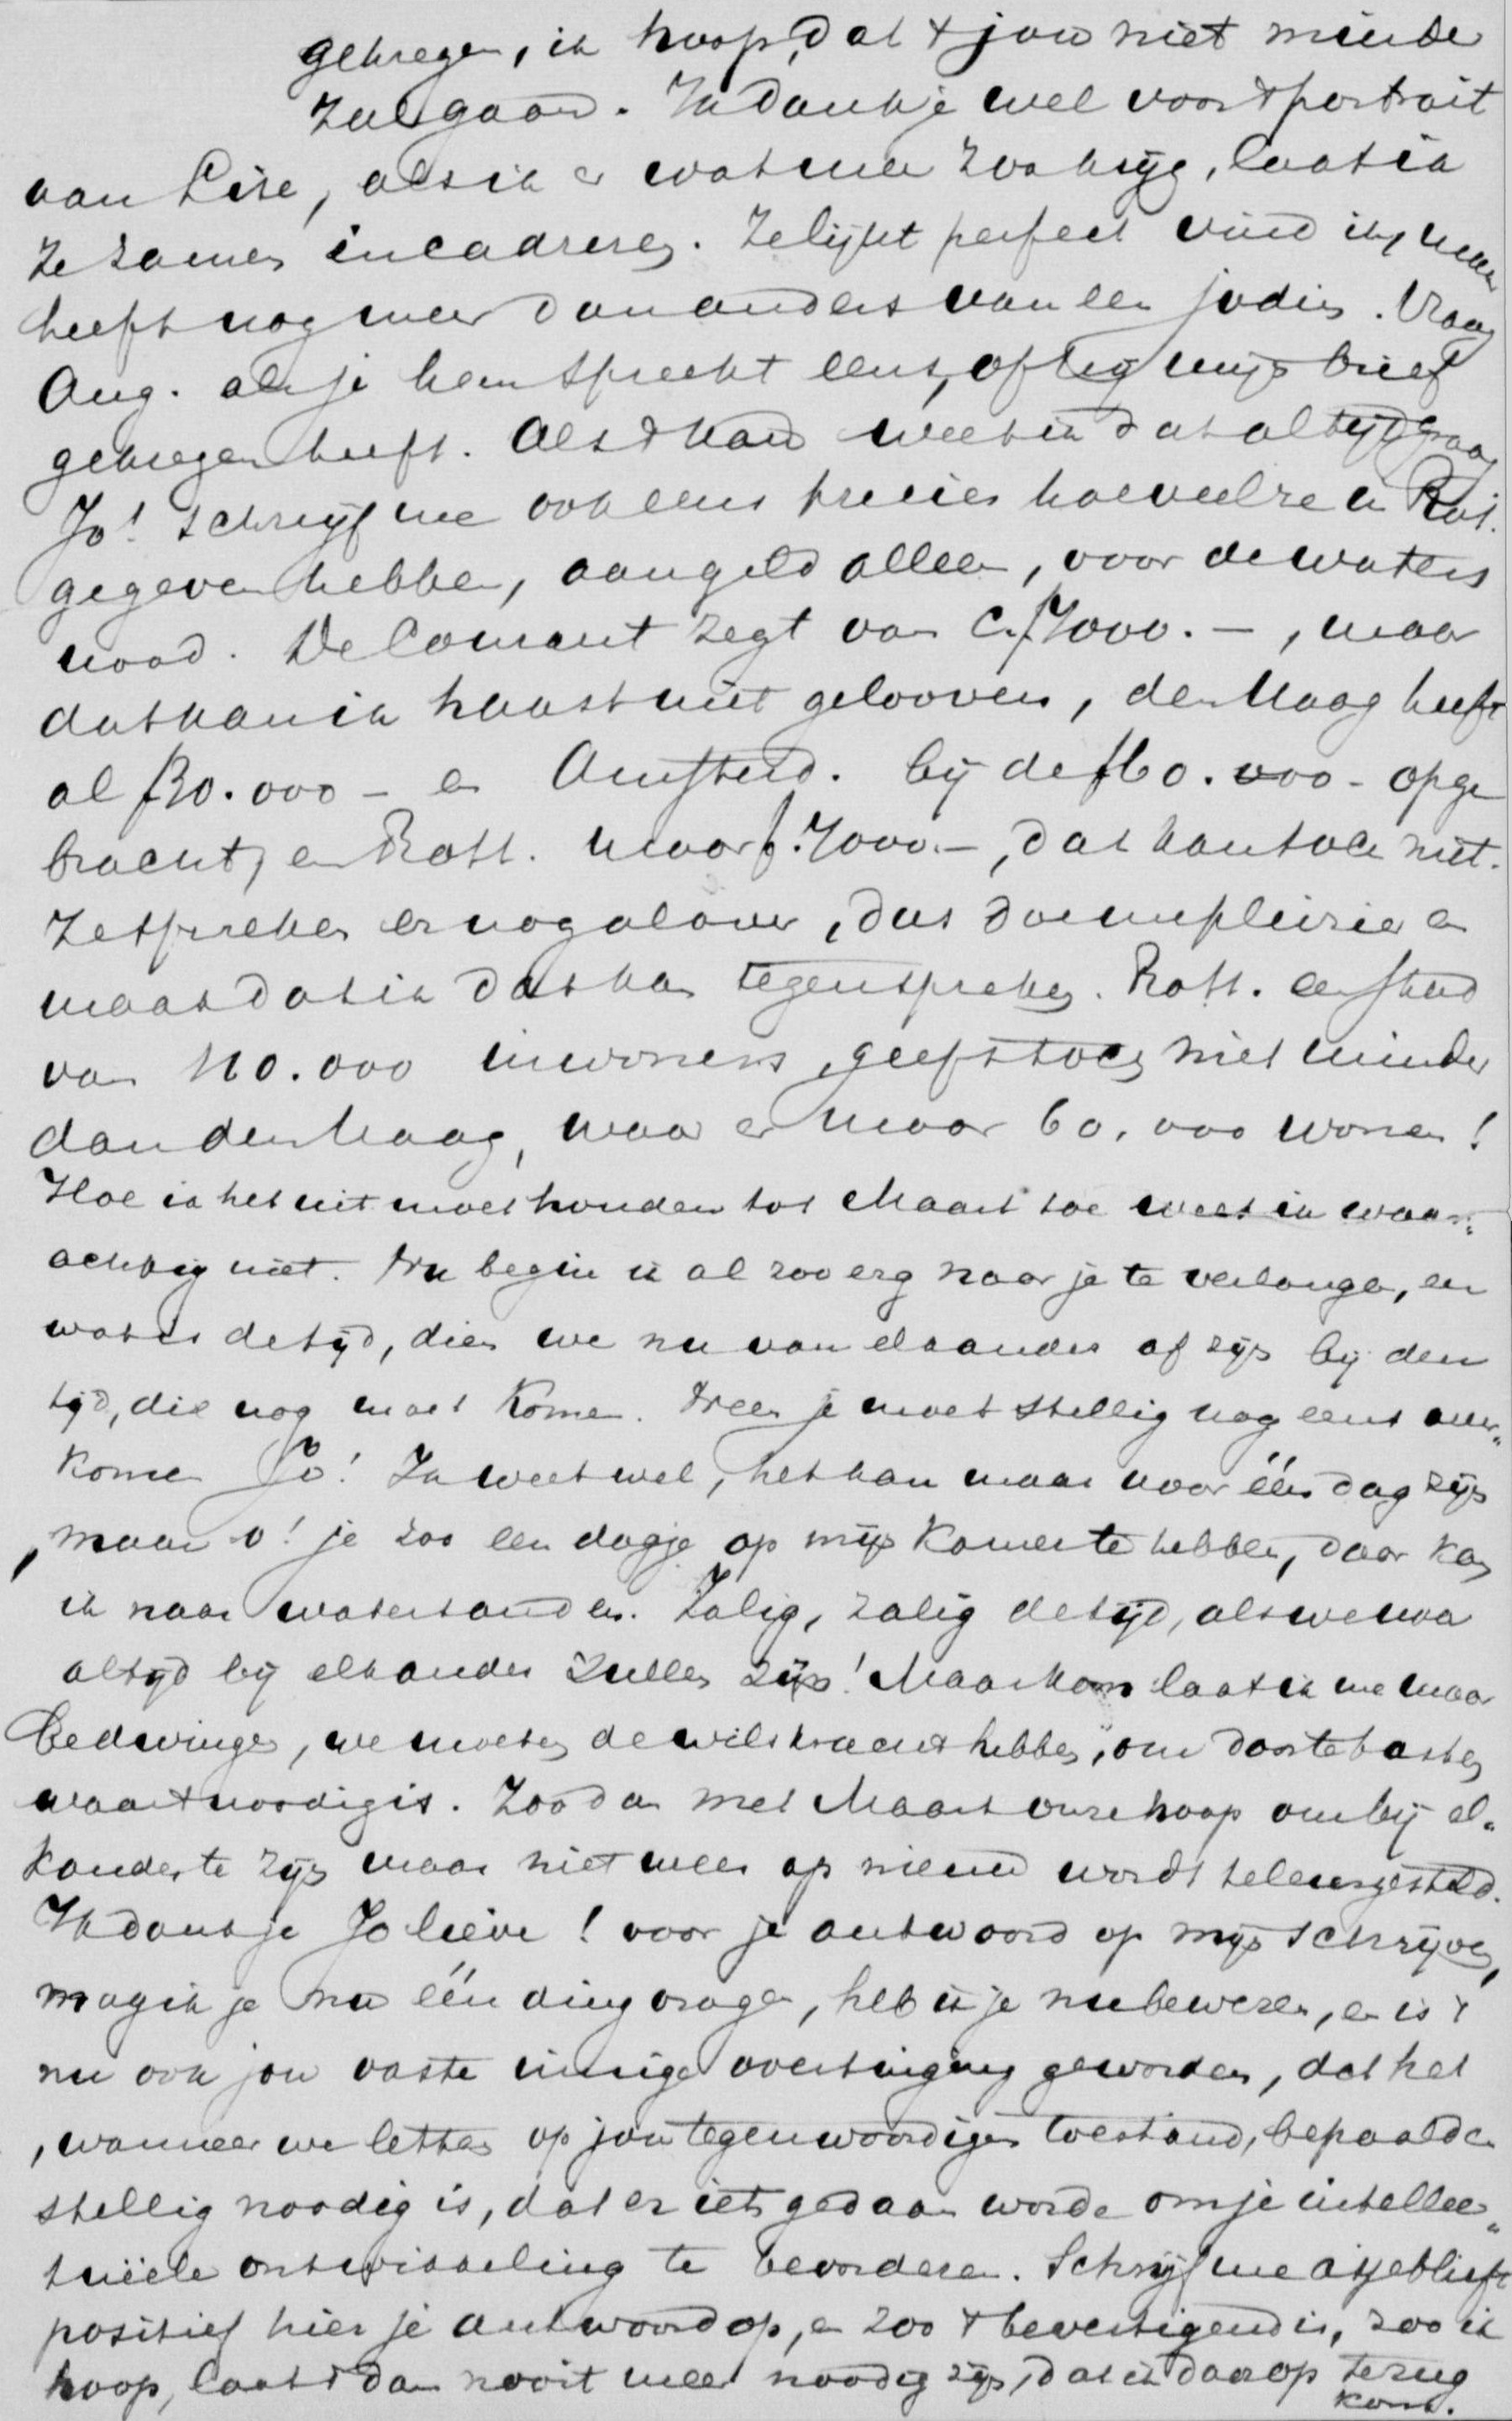 gekregen, ik hoop, dat 't jou niet minder
zal gaan. Ik dank je wel voor 't portrait
van Lise, als ik er wat meer zoo krijg, laat ik
ze samen incadreren. Ze lijkt perfect vind ik, maar
heeft nog meer dan anders van een jodin. Vraag
Aug. als je hem spreekt eens, of hij mijn brief
gekregen heeft. Als 't kan weet ik dat altijd graag
Jo! schrijf me ook eens precies hoeveel ze in Rott.
gegeven hebben, aan geld alleen, voor de waters
nood. De Courant zegt van C. f7000.-, maar
dat kan ik haast niet gelooven, den Haag heeft
al f30.000 - en Amsterd. bij de f60.000 - opge
bracht, en Rott. maar f.7000.-, dat kan toch niet.
Ze spreken er nog al over, dus doe me pleizier en
maak dat ik dat kan tegenspreken. Rott. een stad
van 110.000 inwoners, geeft toch niet minder
dan den Haag, waar er maar 60.000 wonen!
Hoe ik het uit moet houden tot Maart toe weet ik waar„
achtig niet. Nu begin ik al zoo erg naar je te verlangen, en
wat is de tijd, dien we nu van elkander af zijn bij den
tijd, die nog moet komen. Neen je moet stellig nog eens over„
komen Jo! Ik weet wel, het kan maar voor één dag zijn
, maar o! je zoo een dagje op mijn kamer te hebben, daar kan
ik naar watertanden. Zalig, zalig de tijd, als we voor
altijd bij elkander zullen zijn! Maar kom laat ik me maar
bedwingen, we moeten de wilskracht hebben, om door te tasten
waar 't noodig is. Zoo dan met Maart onze hoop om bij el„
kander te zijn maar niet weer op nieuw wordt teleurgesteld.
Ik dank je Jo lieve! voor je antwoord op mijn schrijven,
mag ik je nu één ding vragen, heb ik je nu bewezen, en is 't
nu ook jou vaste innige overtuiging geworden, dat het
, wanneer we letten op jou tegenwoordigen toestand, bepaald en
stellig noodig is, dat er iets gedaan worde om je intellec„
tuëele ontwikkeling te bevorderen. Schrijf me asjeblieft
positief hier je antwoord op, en zoo 't bevestigend is, zoo ik
hoop, laat 't dan nooit meer noodig zijn, dat ik daarop terug
kom.